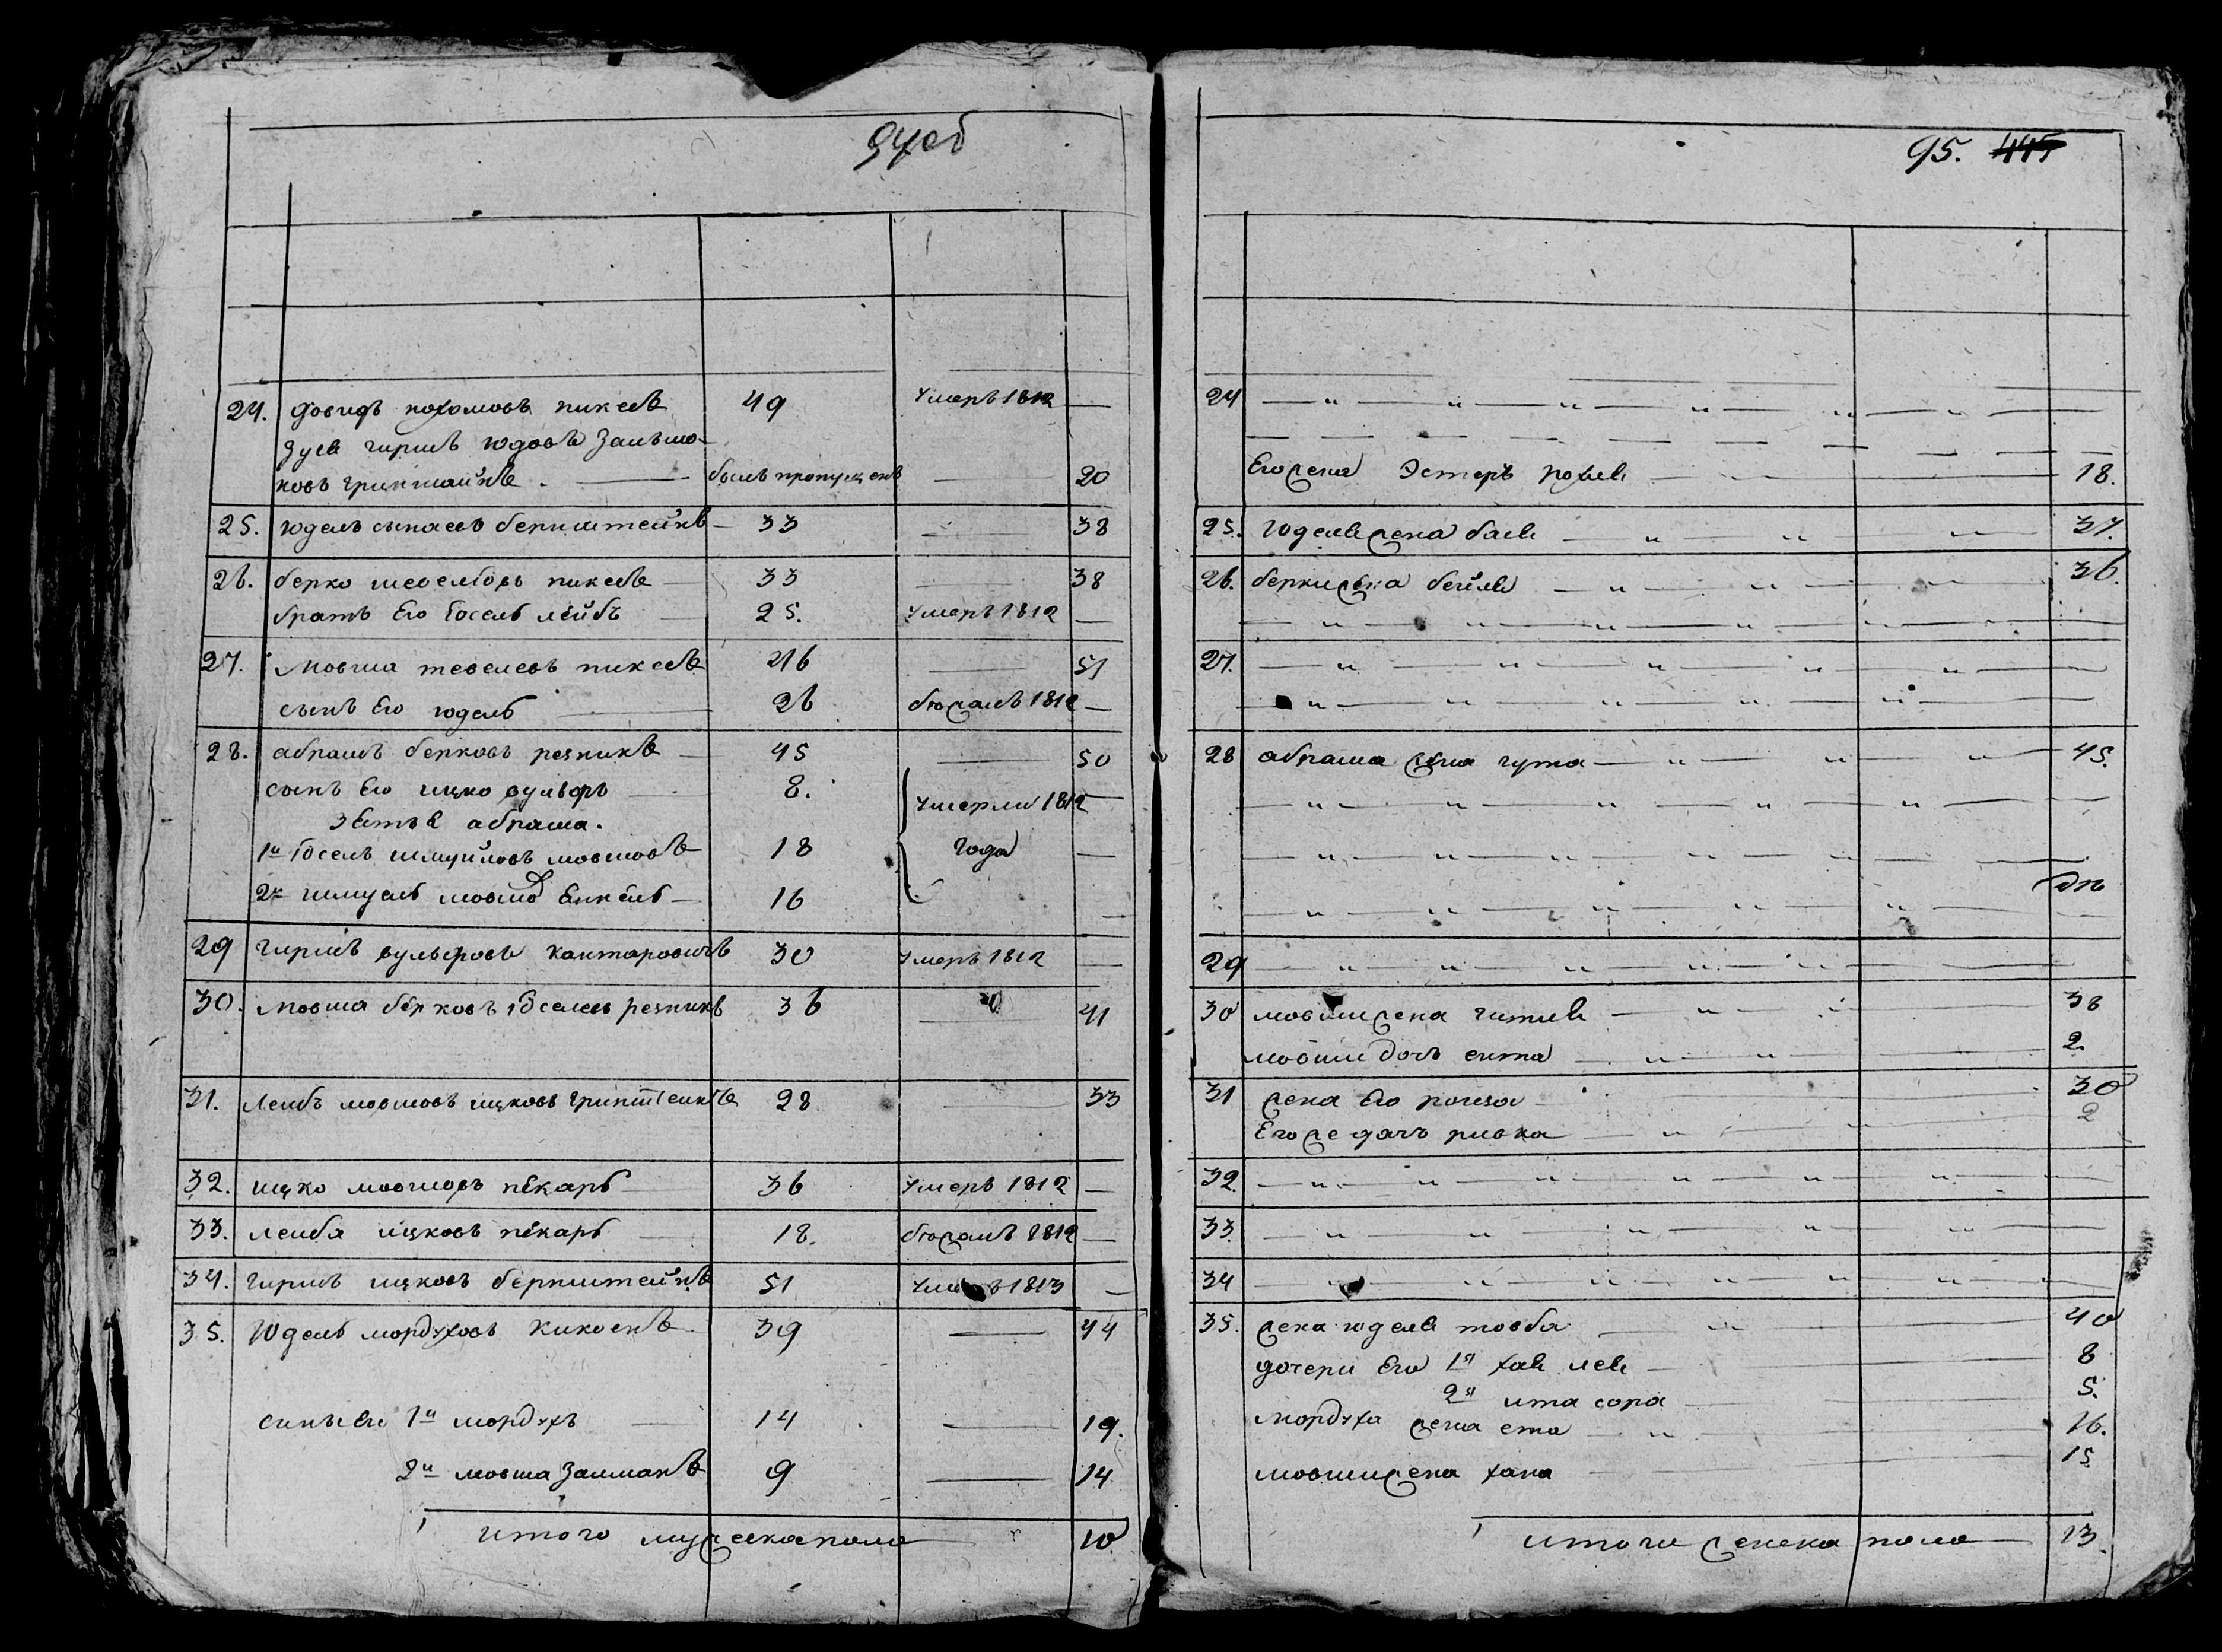 94об
24. Довидъ нохомовъ пикель 49 Умеръ 1812 —
зусь гиршъ юдовъ залъмо-
новъ гринштайнъ. — былъ пропущенъ — 20
25. юдель сынаевъ бернштейнъ — 33 — 38
26. берко шевелевъ пикель — 33 — 38
братъ Его іосель лейбъ — 25. Умеръ 1812 —
27. мовша тевелевъ пикель 46 — 51
сынъ Его юдель — 26 бѣжалъ 1812 —
28. абрамъ берковъ резникъ — 45 — 50
сынъ Его ицко вульфъ — 8. Умерли 1812 —
зятья абрама.
1й іосель шмуйловъ мовшовъ — 18 года —
2й шмуель мовша Енкель — 16 —
29 гиршъ вульфовъ кантаровичъ 30 Умеръ 1812 —
30. мовша берковъ іоселевъ резникъ 36 — 41
31. лейбъ мовшовъ ицковъ гринштейнъ 28 — 33
32. ицко мовшовъ пекарь 36 Умеръ 1812 —
33. лейба ицковъ пекарь 18. бѣжалъ 1812 —
34. гиршъ ицковъ бернштейнъ 51 Умеръ 1813 —
35. Юдель мордуховъ кикоенъ 39 — 44
сины Его 1й мордухъ — 14 — 19.
2й мовша залманъ 9 — 14
итого мужеска пола 10
95. 445
24
Его жена Эстеръ рохель — 18.
25. Юделя жена бася — 37.
26. берки жена бейля — 36.
27.
28 абрама жена гута — 45.
29
30 мовши жена гитля — 38
мовши дочь сита — 2
31 жена Его роиза — 30
Его же дочь ривка — 2
32.
33.
34
35. жена юделя товба — 40
дочери Его 1я хая лея — 8
2я ита сора — 5.
мордуха жена ета — 16.
мовши жена хана — 15
итого женска пола — 13.